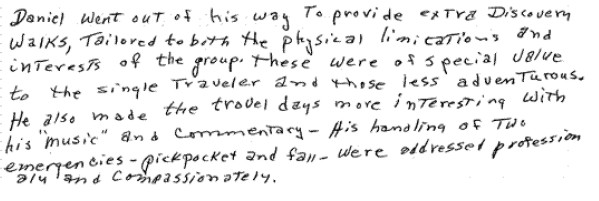 Daniel went out of his way To provide extra Discovery
Walks, Tailored to both the physical limitations and
interests of the group. These were of special value
to the single Traveler and those less adventurous.
He also made the travel days more interesting with
his "music" and commentary - His handling of Two
emergencies - pickpocket and fall - were addressed profession
aly and Compassionately.